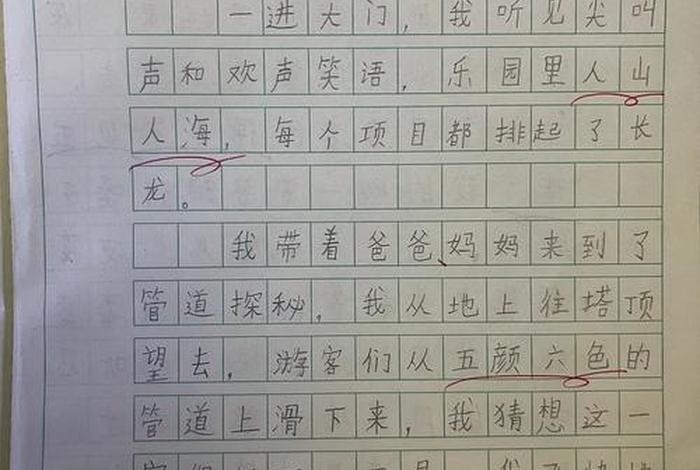 一进大门，我听见尖叫
声和欢声笑语，乐园里人山
人海，每个项目都排起了长
龙。
我带着爸爸、妈妈来到了
管道探秘，我从地上往塔顶
望去，游客们从五颜六色的
管道上滑下来，我猜想这一